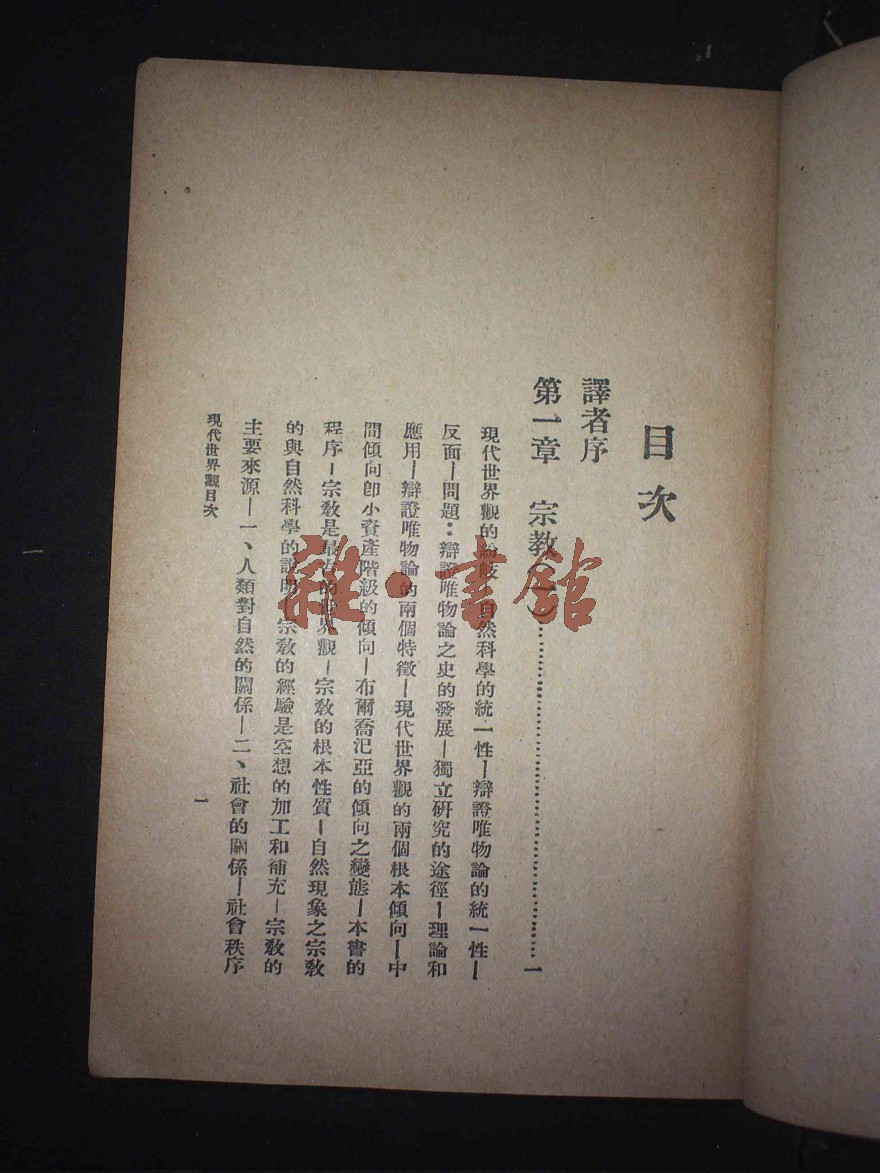 目次
譯者序
第一章　宗教(一)…………………………一
現代世界觀的紛歧—自然科學的統一性—辯證唯物論的統一性—
反面—問題：辯證唯物論之史的發展—獨立研究的途徑—理論和
應用—辯證唯物論的兩個特徵—現代世界觀的兩個根本傾向—中
間傾向卽小資產階級的傾向—布爾喬汜亞的傾向之變態—本書的
程序—宗教是最古的世界觀—宗教的根本性質—自然現象之宗教
的與自然科學的說明—宗教的經驗是空想的加工和補充—宗教的
主要來源—一、人類對自然的關係—二、社會的關係—社會秩序
現代世界觀目次
一
雜·書館